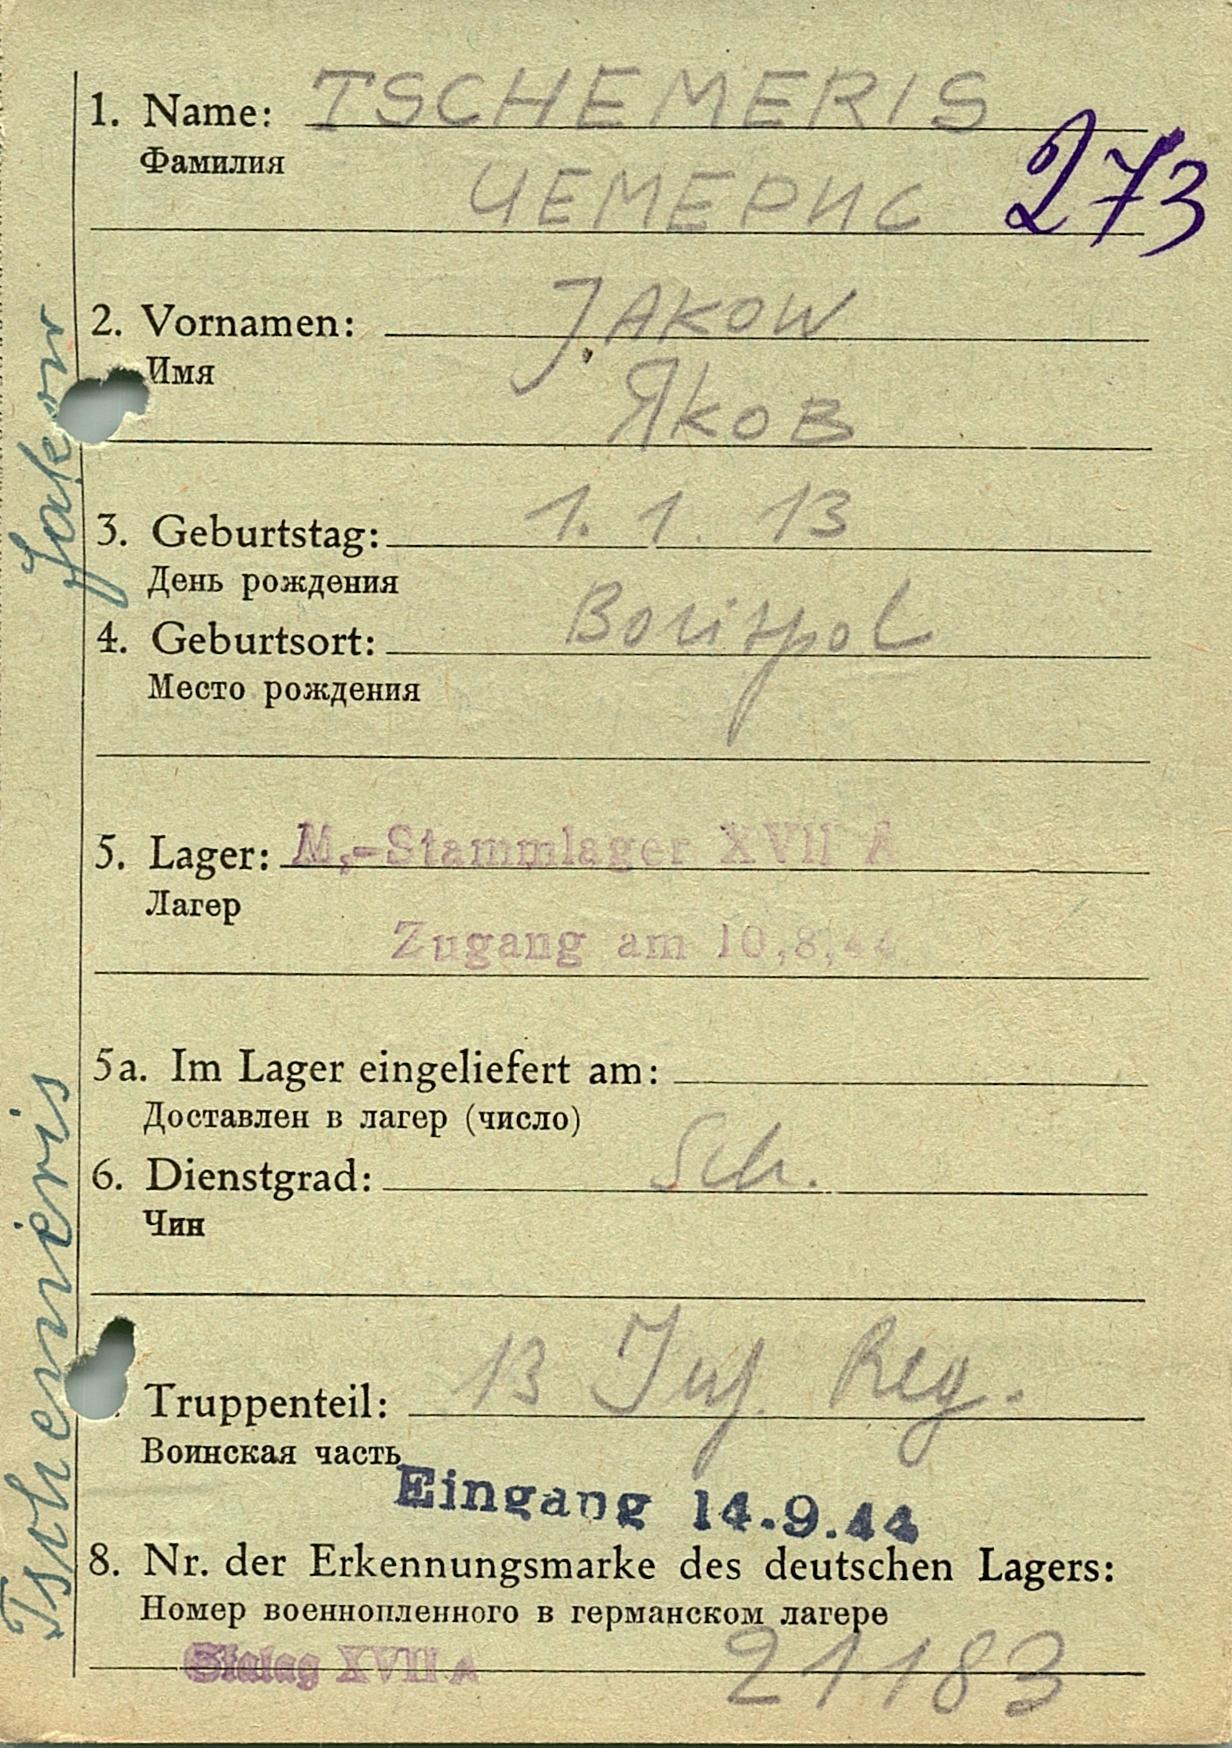 1. Name: TSCHEMERIS
Фамилия
ЧЕМЕРИС
273
2. Vornamen: JAKOW
Имя
ЯКОВ
3. Geburtstag: 1. 1. 13
День рождения
4. Geburtsort: Borispol
Место рождения
5. Lager: M.-Stammlager XVII A
Лагер
Zugang am 10.8.44
5a. Im Lager eingeliefert am:
Доставлен в лагер (число)
6. Dienstgrad: Sch.
Чин
Truppenteil: 13 Inf. Reg.
Воинская часть
Eingang 14.9.44
8. Nr. der Erkennungsmarke des deutschen Lagers:
Номер военнопленного в германском лагере
Stalag XVII A 21183
Tschemeris Jakow